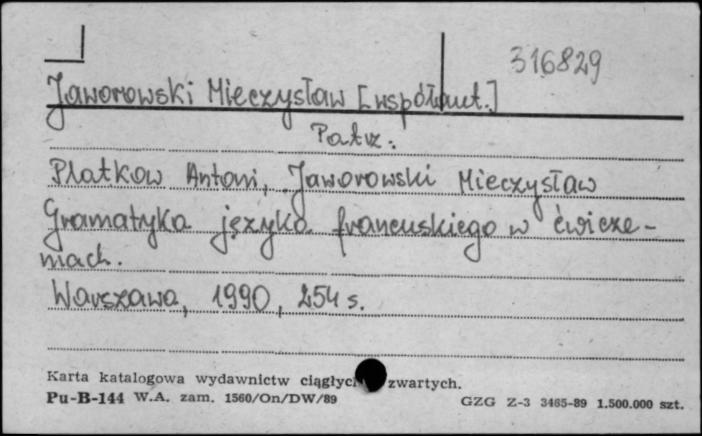 316829
Jaworowski Mieczysław [współaut.]
Patrz:
Platkow Antoni, Jaworowski Mieczysław
Gramatyka języka francuskiego w ćwicze-
niach.
Warszawa, 1990, 254 s.
Karta katalogowa wydawnictw ciągłych zwartych.
Pu-B-144 W.A. zam. 1560/On/DW/89 GZG Z-3 3465-89 1.500.000 szt.